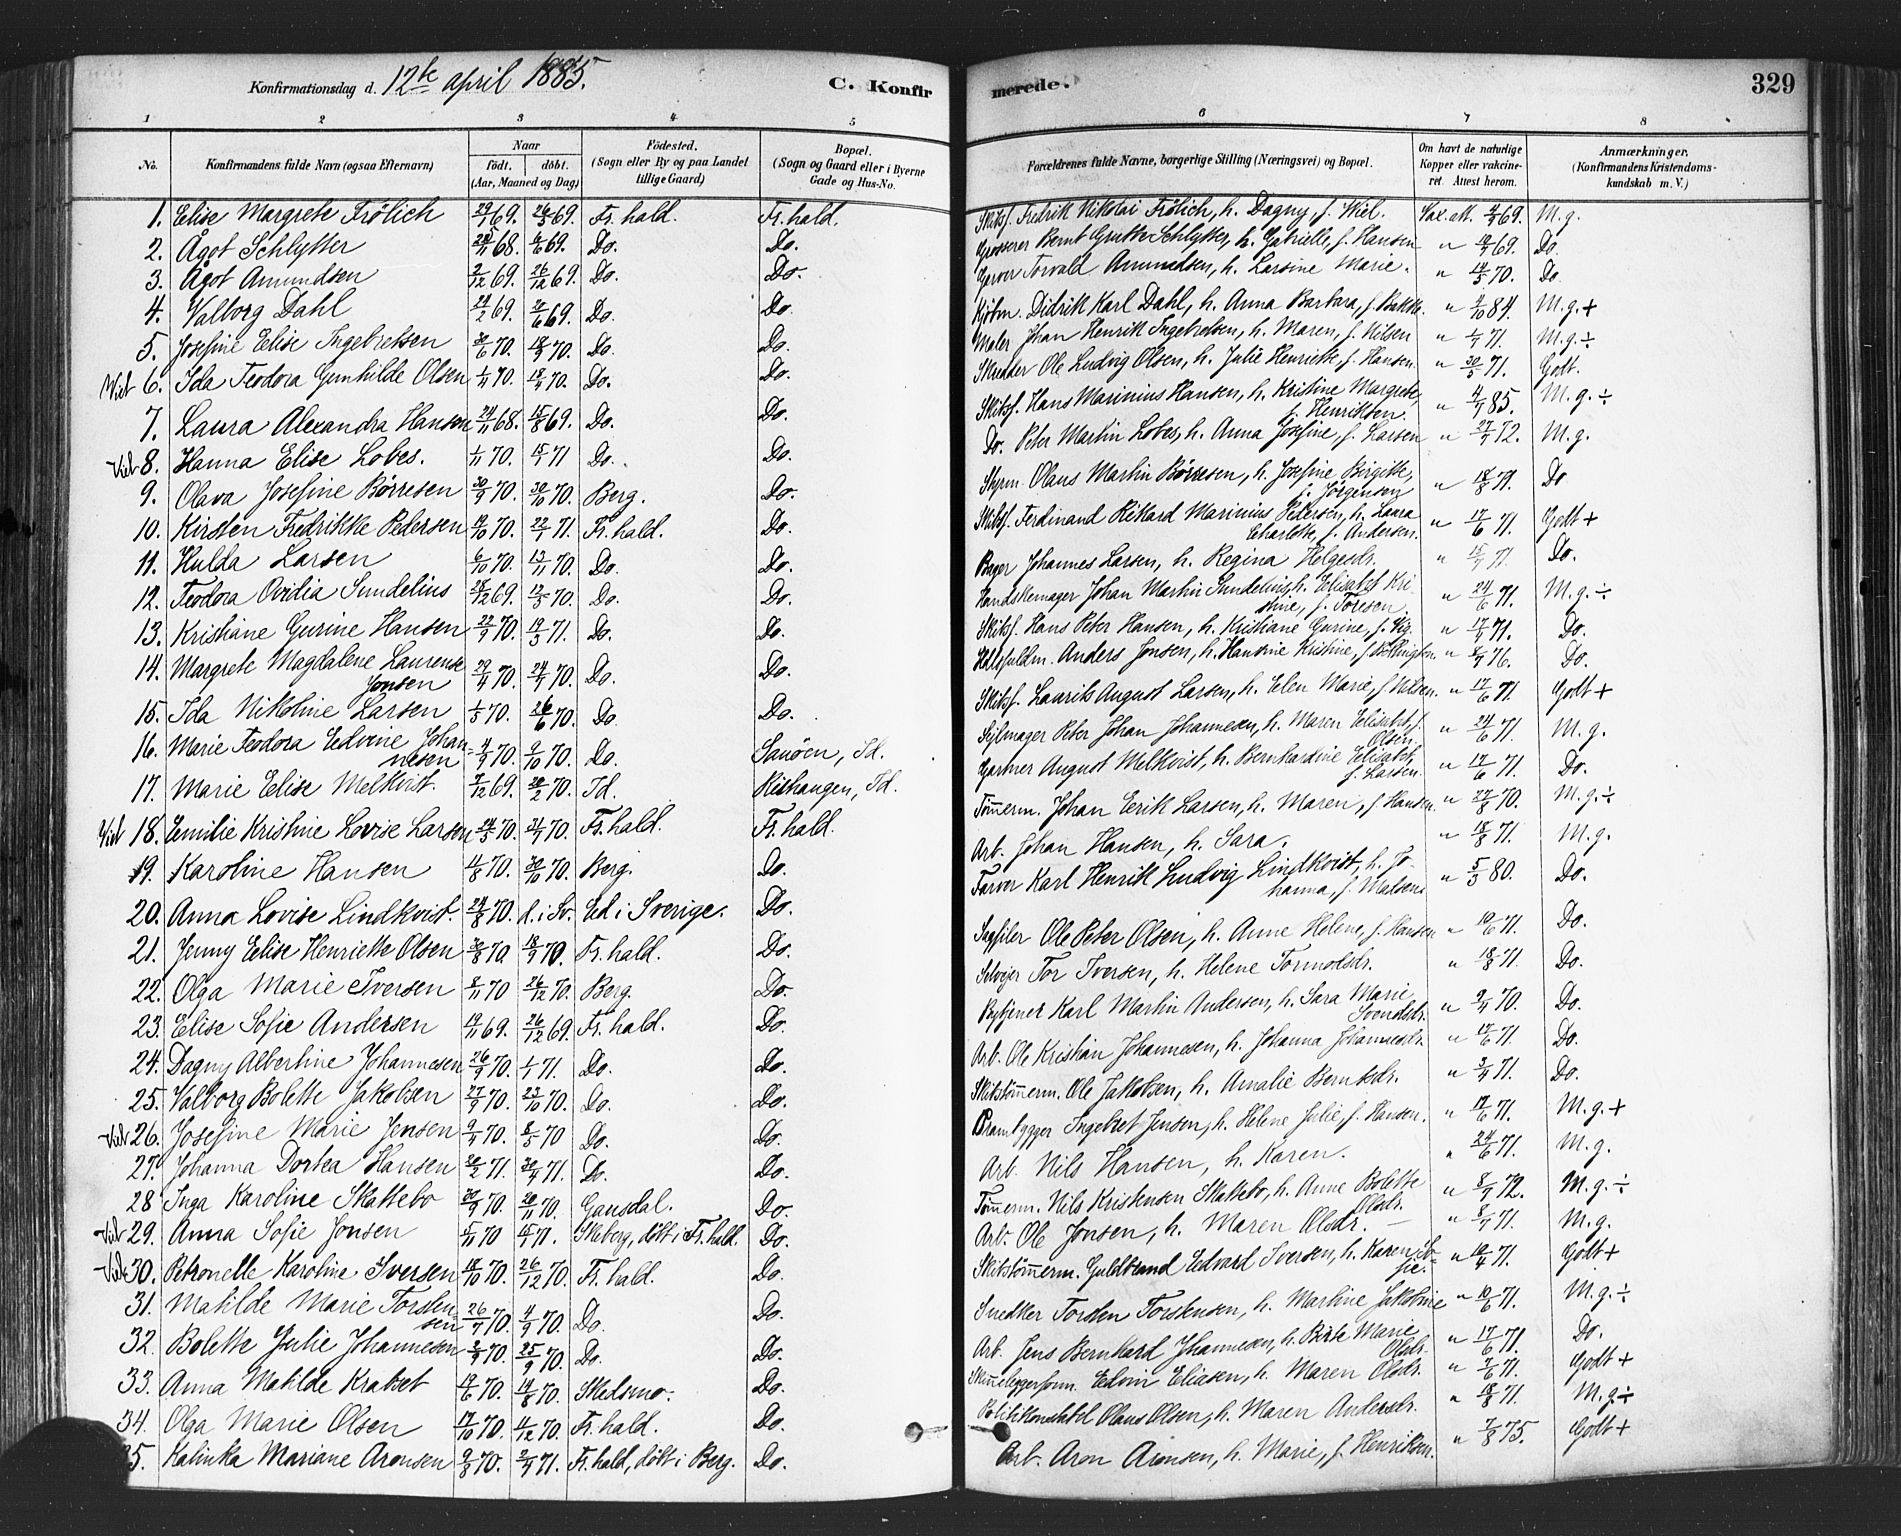 Konfirmationsdag d. 12te april 1885.
C. Konfir
merede.
329
1 2 3 4 5 6 7 8
No.
Konfirmandens fulde Navn (ogsaa Efternavn)
Naar
födt. döbt.
(Aar, Maaned og Dag)
Födested.
(Sogn eller By og paa Landet
tillige Gaard)
Bopæl.
(Sogn og Gaard eller i Byerne
Gade og Hus-No.
Forældrenes fulde Navne, borgerlige Stilling (Næringsvei) og Bopæl.
Om havt de naturlige
Kopper eller vakcine-
ret. Attest herom.
Anmærkninger.
(Konfirmandens Kristendoms-
kundskab m. V.)
1. Elise Margrete Frölich 29/1 69. 26/3 69. Fr.hald. Fr.hald.
2. Ågot Schlytter 68. 69. Do. Do.
3. Ågot Amundsen 2/12 69. 26/12 69. Do. Do.
4. Valborg Dahl 24/2 69. 20/6 69. Do. Do.
5. Josefine Elise Ingebretsen 70. 18/9 70. Do. Do.
Viet 6. Ida Teodora Gunhilde Olsen 1/11 70. 70. Do. Do.
7. Laura Alexandra Hansen 24/11 68. 15/8 69. Do. Do.
Viet 8. Hanna Elise Lobes. 1/11 70. 15/1 71 Do. Do.
9. Olava Josefine Börresen 30/9 70. 30/10 70. Berg. Do.
10. Kirsten Fredrikke Pedersen 19/10 70. 22/1 71. Fr.hald. Do.
11. Hulda Larsen 6/10 70. 13/11 70. Do. Do.
12. Teodora Ovidia Sundelius 28/12 69. 70. Do. Do.
13. Kristiane Gurine Hansen 22/9 70. 19/3 71. Do. Do.
14. Margrete Magdalene Laurense
Jonsen 29/4 70. 24/7 70. Do. Do.
15. Ida Nikoline Larsen 1/5 70. 26/6 70. Do. Do.
16. Marie Teodora Edvine Johan-
nesen 4/9 70. 9/10 70. Do. Sauöen, Id.
17. Marie Elise Melkvist. 7/12 69. 20/2 70. Id. Id.
Viet 18. Emilie Kristine Lovise Larsen 24/5 70. 70. Fr.hald. Fr.hald.
19. Karoline Hansen 4/8 70. 30/10 70. Berg. Do.
20. Anna Lovise Lindkvist. 24/8 70. d. i Sv. Ed i Sverige. Do.
21. Jenny Elise Henriette Olsen 70 18/9 70. Fr.hald. Do.
22. Olga Marie Iversen 8/11 70 26/12 70. Berg. Do.
23. Elise Sofie Andersen 19/11 69. 26/12 69. Fr.hald. Do.
24. Dagny Albertine Johannesen 26/9 70. 1/1 71. Do. Do.
25. Valborg Bolette Jakobsen 27/9 70. 23/10 70. Do. Do.
Viet 26. Josefine Marie Jensen 9/4 70. 8/5 70 Do. Do.
27. Johanna Dortea Hansen 20/2 71. 30/4 71. Do. Do.
28 Inga Karoline Skattebo 30/9 70. 20/11 70. Gausdal. Do.
Viet 29. Anna Sofie Jonsen 5/11 70 71. Skeberg, döbt i Fr.hald. Do.
Viet 30. Petronelle Karoline Iversen 18/10 70. 26/12 70. Fr.hald. Do.
31. Matilde Marie Torsten-
sen 26/7 70. 4/9 70. Do. Do.
32. Bolette Julie Johannesen 2/9 70. 25/9 70. Do. Do.
33. Anna Matilde Krabset 19/6 70. 14/8 70. Skedsmo. Do.
34. Olga Marie Olsen 17/10 70. 4/12 70. Fr.hald. Do.
35. Kalinka Mariane Aronsen 9/8 70. 71. Fr.hald, döbt i Berg. Do.
Skibsf. Fredrik Nikolai Frölich, h. Dagny, f. Wiel. Vax. att. 69. M.g.
Grosserer Bernt Schlytter, h. Gabrielle, f. Hansen " 69. Do.
Garver Torvald Amundsen, h. Larsine Marie. " 14/5 70. Do
Kjöbm. Didrik Karl Dahl, h. Anna Barbara, f. Bakke. " 4/10 84. M.g.+
Maler Johan Henrik Ingebretsen, h. Maren, f. Nilsen " 71. M.g.÷
Skredder Ole Ludvig Olsen, h. Julie Henriette, f. Hansen. " 30/5 71. Godt.
Skibsf. Hans Marinius Hansen, h. Kristine Margrete,
f. Henriksen. " 85. M.g.÷
Do. Peter Martin Lobes, h. Anna Josefine, f. Larsen " 72. M.g.
Styrm. Olaus Martin Börresen, h. Josefine Birgitte,
f. Jörgensen " 18/8 71. Do
Skibsf. Ferdinand Rikard Marinius Pedersen, h. Laura
Charlotte, f. Andersen. " 17/6 71. Godt+
Bager Johannes Larsen, h. Regina Helgesdr. " 71. Do.
Handskemager Johan Martin Sundelius, h. Elisabet Kri-
stine, f. Toresen. " 24/6 71. M.g.÷
Skibsf. Hans Peter Hansen, h. Kristiane Gurine, f. Vig " 71. Do.
Anders Jonsen, h. Hansine Kristine, f. " 76. Do.
Skibsf. Laurits August Larsen, h. Elen Marie, f. Nilsen. " 17/6 71 Godt+
Sejlmager Peter Johan Johannesen, h. Maren Elisabet, f.
Olsen " 24/6 71. M.g.
Gartner August Melkvist, h. Bernhardine Elisabet,
f. Larsen. " 17/6 71. Do.
Tömerm. Johan Eerik Larsen, h. Maren, f. Hansen. " 70. M.g.÷
Arb. Johan Hansen, h. Sara. " 18/8 71. M.g.
Farver Karl Henrik Ludvig Lindkvist, h. Jo-
hanna, f. Matsen " 5/5 80. Do.
Sagfiler Ole Peter Olsen, h. Anne Helene, f. Hansen " 19/6 71. Do.
Selvejer Tor Iversen, h. Helene Tormodsdr. " 18/8 71. Do.
Karl Martin Andersen, h. Sara Marie
Svendsdr. " 9/4 70. Do.
Arb. Ole Kristian Johannesen, h. Johanna Johannesdr. " 17/6 71. Do.
Skibstömerm. Ole Jakobsen, h. Amalie Berntsdr. " 71. Do.
Prambygger Ingebret Jensen, h. Helene Julie, f. Hansen. " 17/6 71. M.g.+
Arb. Nils Hansen, h. Karen. " 24/6 71. M.g.
Tömerm. Nils Kristensen Skattebo, h. Anne Bolette
Olsdr. " 72. M.g.÷
Arb. Ole Jonsen, h. Maren Olsdr. — " 71. M.g.
Skibstömerm. Guldbrand Edvard Iversen, h. Karen So-
fie. " 71. Godt+
Snedker Torsten Torstensen, h. Martine Jakobine " 10/6 71. M.g.÷
Arb. Jens Bernhard Johannesen, h. Berte Marie
Olsdr. " 17/6 71. Do.
Edvin Eliasen, h. Maren Olsdr. " 71. Godt+
Politikonstabel Olaus Olsen, h. Maren Andersdr. " 18/8 71. M.g÷
Arb. Aron Aronsen, h. Marie, f. Henriksen. " 7/8 75. Godt+